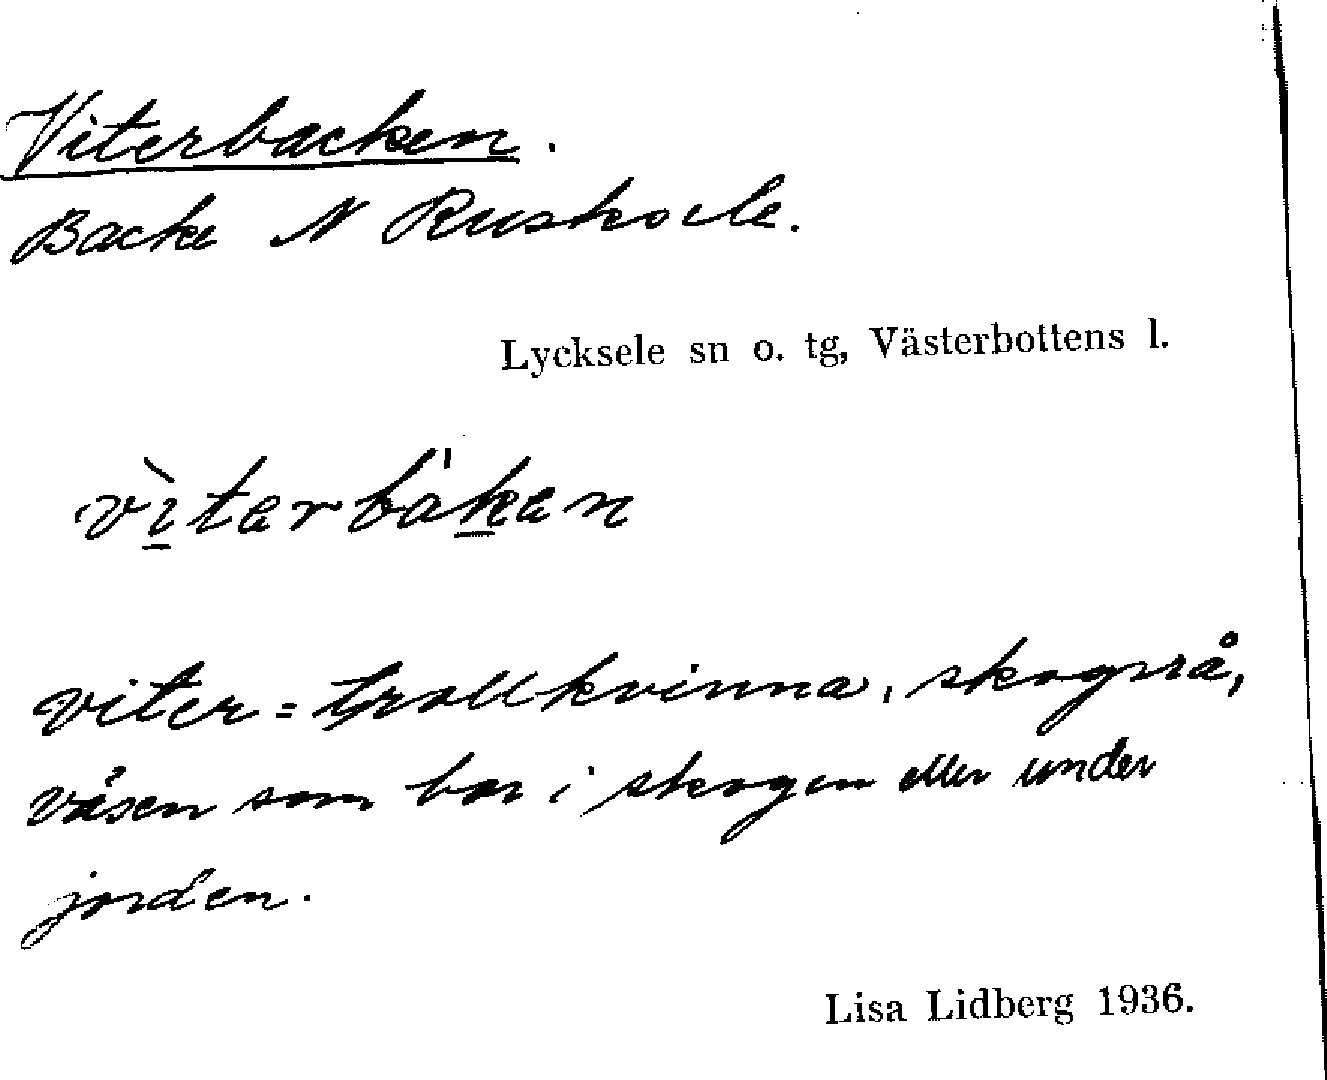 Viterbacken.
Backe N Rusksele.
Lycksele sn o. tg, Västerbottens l.
vìterbáken
viter = trollkvinna, skogsrå,
väsen som bor i skogen eller under
jorden.
Lisa Lidberg 1936.